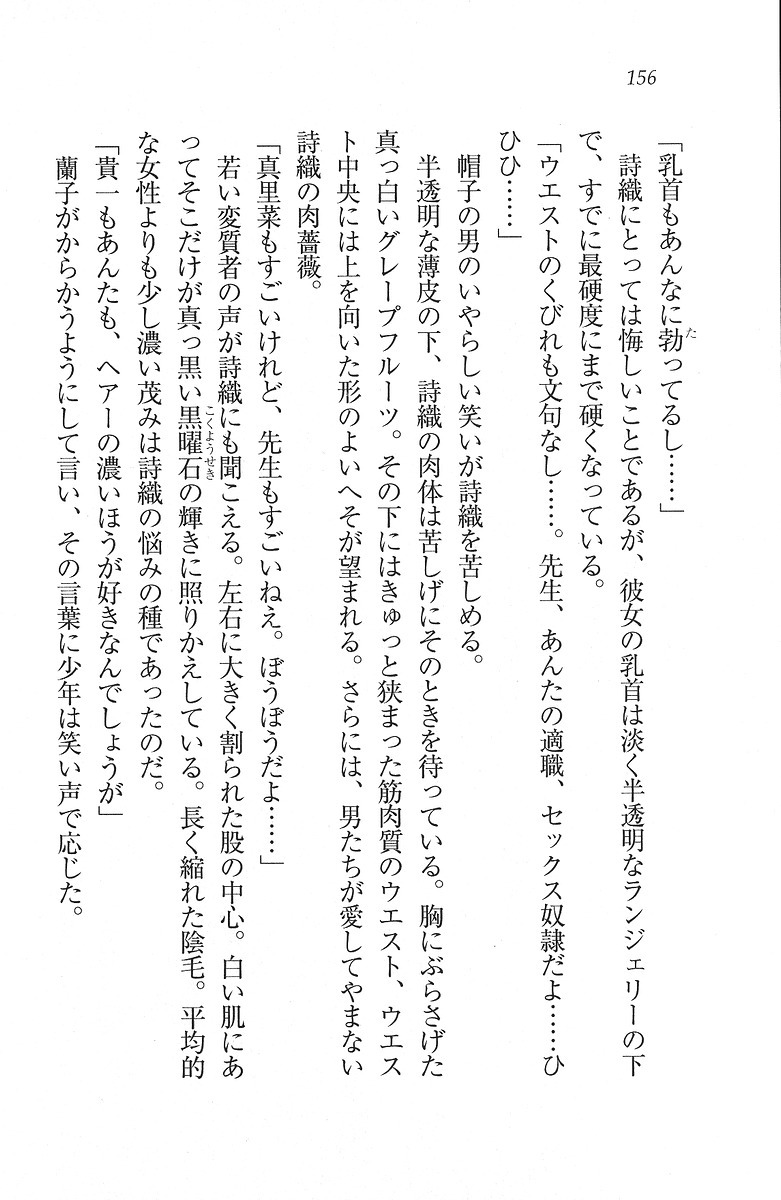 156
「乳首もあんなに勃ってるし……」
詩織にとっては悔しいことであるが、彼女の乳首は淡く半透明なランジェリーの下
で、すでに最硬度にまで硬くなっている。
「ウエストのくびれも文句なし……。先生、あんたの適職、セックス奴隷だよ……ひ
ひひ……」
帽子の男のいやらしい笑いが詩織を苦しめる。
半透明な薄皮の下、詩織の肉体は苦しげにそのときを待っている。胸にぶらさげた
真っ白いグレープフルーツ。その下にはきゅっと狭まった筋肉質のウエスト、ウエス
ト中央には上を向いた形のよいへそが望まれる。さらには、男たちが愛してやまない
詩織の肉薔薇。
「真里菜もすごいけれど、先生もすごいねえ。ぼうぼうだよ……」
若い変質者の声が詩織にも聞こえる。左右に大きく割られた股の中心。白い肌にあ
ってそこだけが真っ黒い黒曜石の輝きに照りかえしている。長く縮れた陰毛。平均的
な女性よりも少し濃い茂みは詩織の悩みの種であったのだ。
「貴一もあんたも、ヘアーの濃いほうが好きなんでしょうが」
蘭子がからかうようにして言い、その言葉に少年は笑い声で応じた。